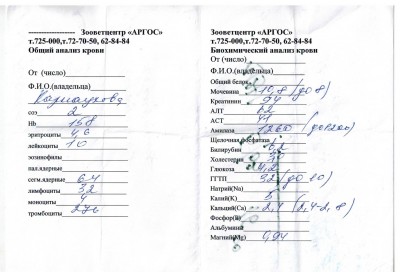 ------------------ Зооветцентр «АРГОС»
т.725-000,т.72-70-50, 62-84-84
Общий анализ крови
От (число)
Ф.И.О.(владельца)
соэ 2
Hb 158
эритроциты 4,6
лейкоциты 10
эозинофилы
пал.ядерные
сегм.ядерные 64
лимфоциты 32
моноциты 4
тромбоциты 276
Зооветцентр «АРГОС»
т.725-000,т.72-70-50, 62-84-84
Биохимический анализ крови
От (число)
Ф.И.О.(владельца)
Общий белок
Мочевина 10,8 (до 8)
Креатинин 94
АЛТ
АСТ 41
Амилаза 1260 (до 1200)
Щелочная фосфатаза
Билирубин 6,2
Холестерин
Глюкоза 4,2
ГГТП 32 (до 10)
Натрий(Na)
Калий(К) 5
Кальций(Ca) 2,4 (2,4-2,8)
Фосфор(Р)
Альбумин
Магний(Mg) 0,94